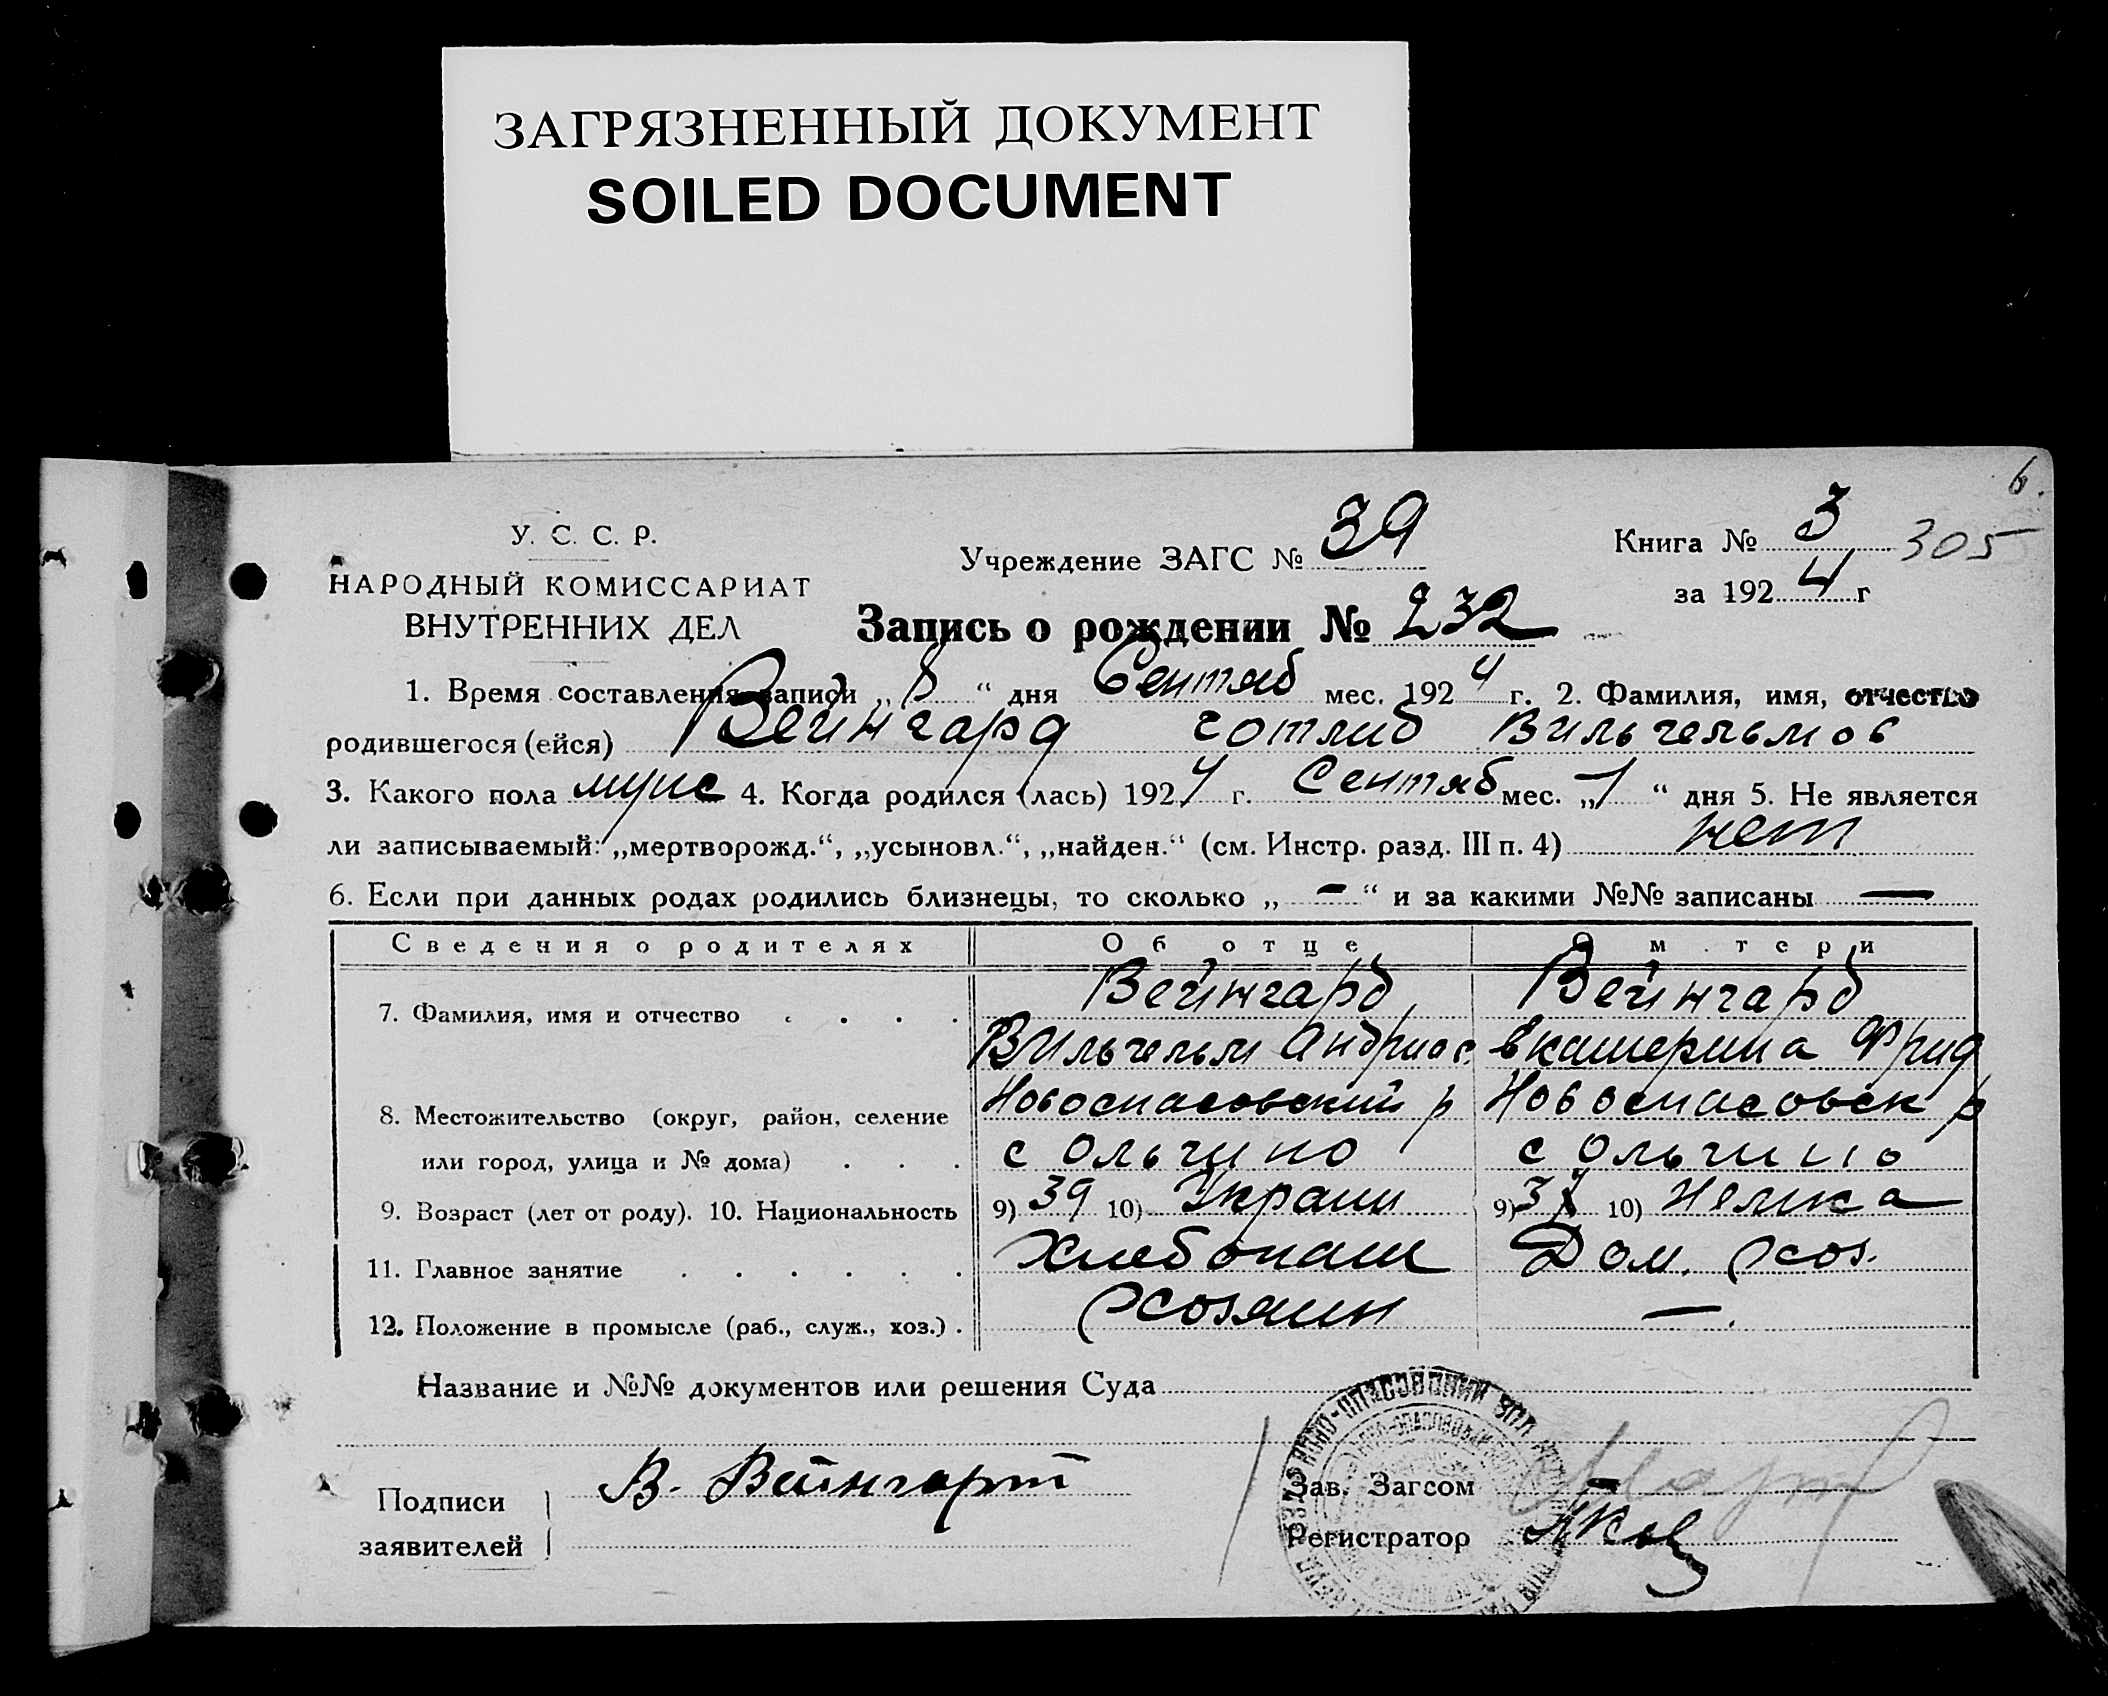 ЗАГРЯЗНЕННЫЙ ДОКУМЕНТ
SOILED DOCUMENT
6.
У. С. С. Р.
НАРОДНЫЙ КОМИССАРИАТ
ВНУТРЕННИХ ДЕЛ
Учреждение ЗАГС № 39
Книга № 3 305
за 1924 г
Запись о рождении № 232
1. Время составления записи „ 8 “ дня Сентяб мес. 1924 г. 2. Фамилия, имя, отчество
родившегося (ейся) Вейнгард Готлиб Вильгельмов
3. Какого пола муж 4. Когда родился (лась) 1924 г. Сентяб мес. „ 1 “ дня 5. Не является
ли записываемый: „мертворожд.“, „усыновл.“, „найден.“ (см. Инстр. разд. III п. 4) нет
6. Если при данных родах родились близнецы, то сколько „ — “ и за какими №№ записаны —
Сведения о родителях Об отце О м тери
7. Фамилия, имя и отчество Вейнгард Вейнгард
Вильгельм Андриас Екатерина Фрид
8. Местожительство (округ, район, селение Новоспасовский р Новоспасовск р
или город, улица и № дома) с Ольгино с Ольгино
9. Возраст (лет от роду). 10. Национальность 9) 39 10) Украин 9) 10) Немка
11. Главное занятие Хлебопаш Дом. хоз.
12. Положение в промысле (раб., служ., хоз.) Хозяин —
Название и №№ документов или решения Суда
Подписи В. Вейнгарт
заявителей
Зав. Загсом
Регистратор